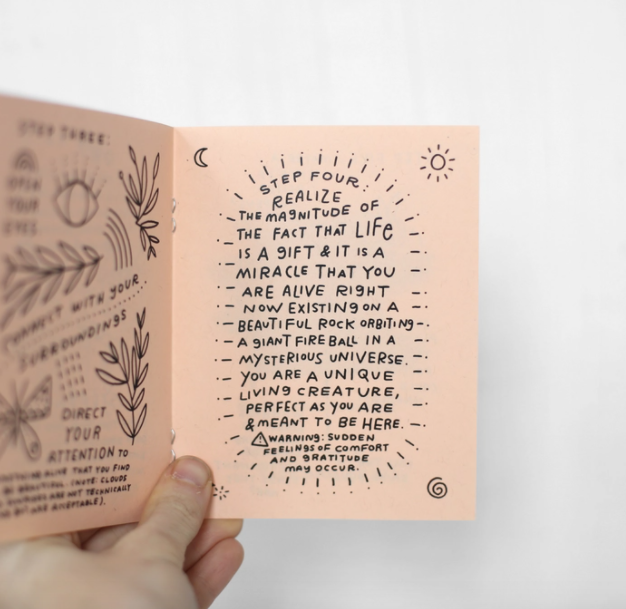 STEP THREE:
OPEN
YOUR
EYES.
CONNECT WITH YOUR
SURROUNDINGS
DIRECT
YOUR
ATTENTION TO
SOMETHING ALIVE THAT YOU FIND
BEAUTIFUL. (NOTE: CLOUDS
ARE NOT TECHNICALLY
BUT ARE ACCEPTABLE).
STEP FOUR:
REALIZE
THE MAGNITUDE OF
THE FACT THAT LIFE
IS A GIFT & IT IS A
MIRACLE THAT YOU
ARE ALIVE RIGHT
NOW EXISTING ON A
BEAUTIFUL ROCK ORBITING
A GIANT FIRE BALL IN A
MYSTERIOUS UNIVERSE.
YOU ARE A UNIQUE
LIVING CREATURE,
PERFECT AS YOU ARE
& MEANT TO BE HERE.
WARNING: SUDDEN
FEELINGS OF COMFORT
AND GRATITUDE
MAY OCCUR.